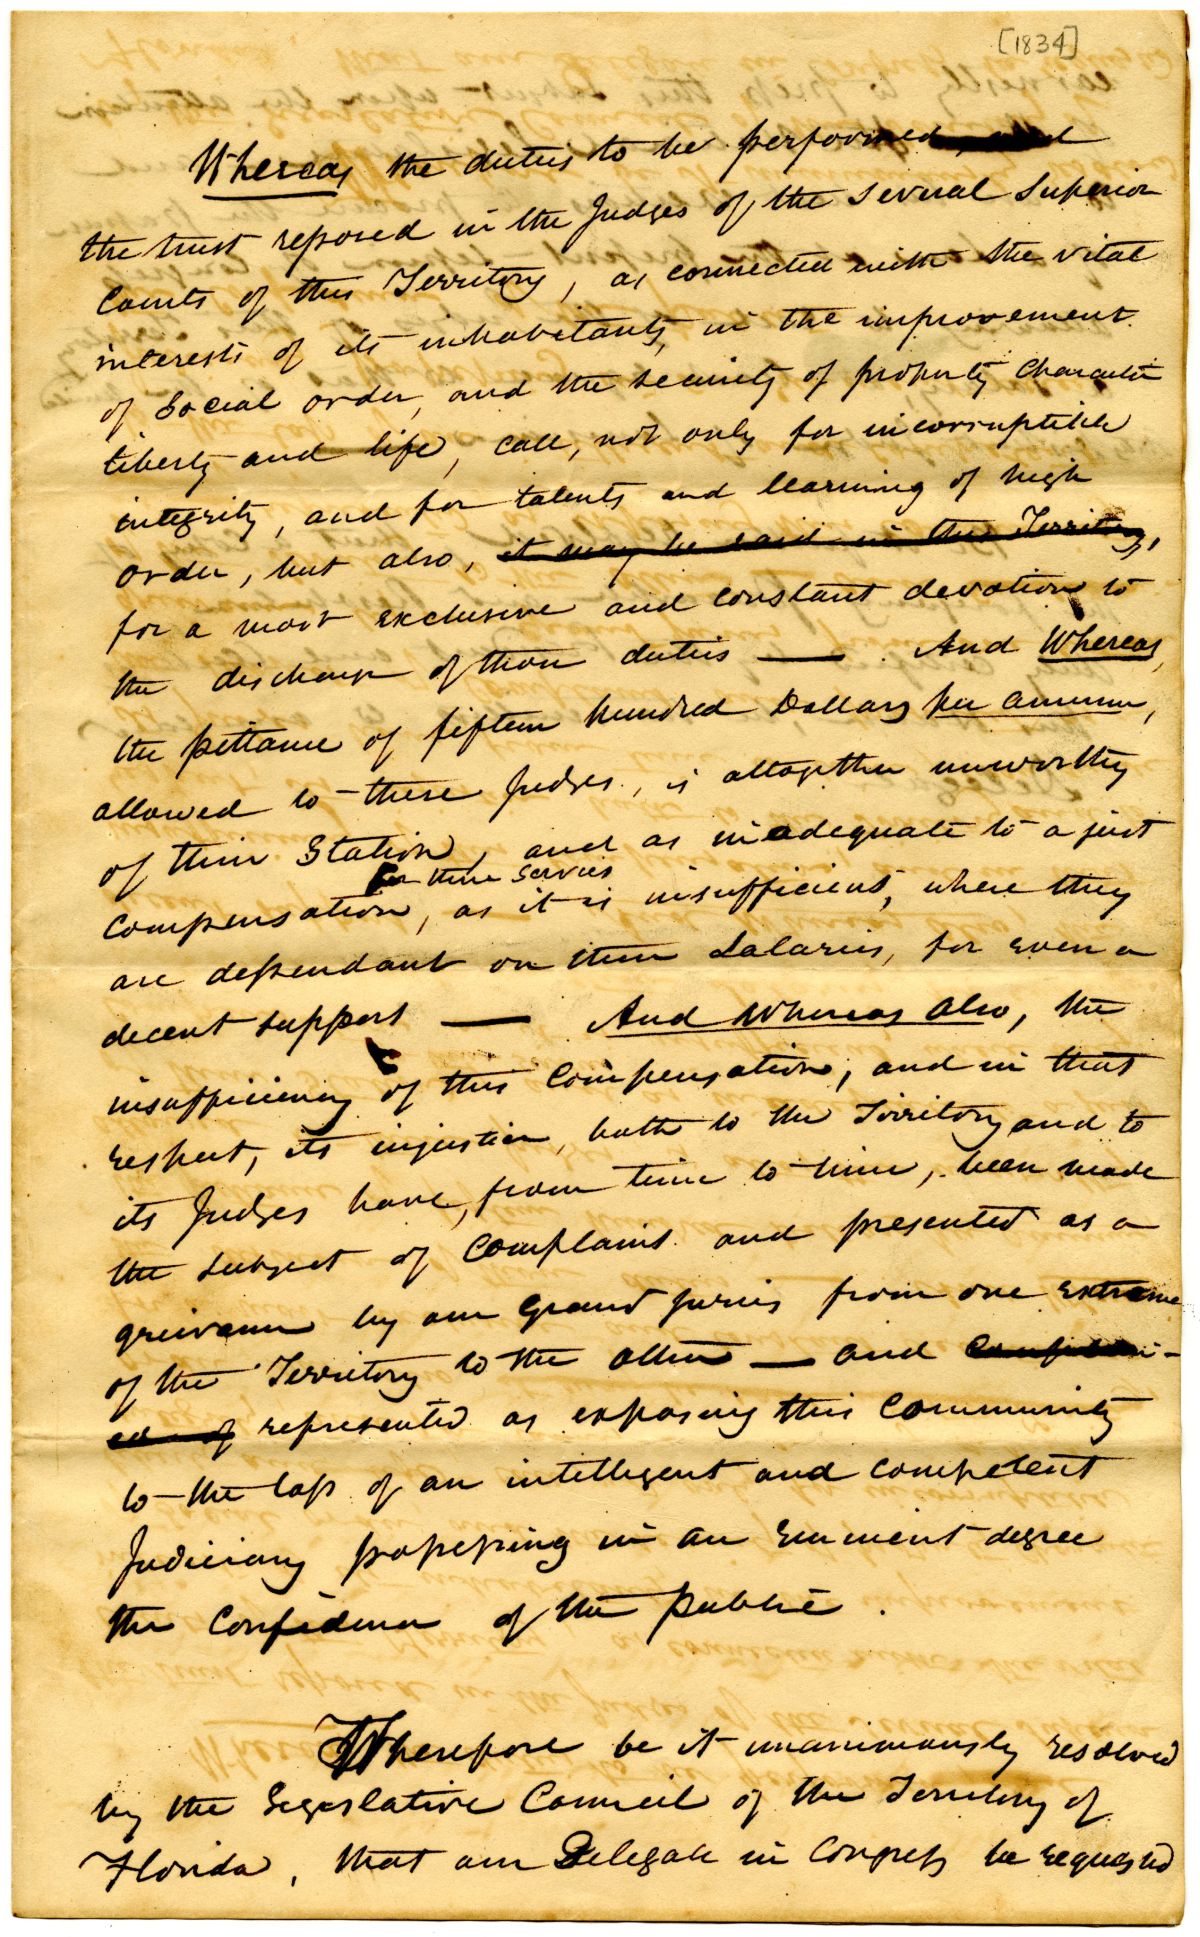 [1834]
Whereas the duties to be performed, and
the trust reposed in the Judges of the several Superior
Courts of this Territory, as connected with the vital
interests of its inhabitants, in the improvement
of Social order, and the security of property Character
liberty and life, call, not only for incorruptible
integrity, and for talents and learning of high
order, but also, it may be said in this Territory,
for a most exclusive and constant devotion to
the discharge of those duties — . And Whereas,
the pittance of fifteen hundred Dollars per annum,
allowed to these Judges, is altogether unworthy
of their Station, and as inadequate to a just
for their services
compensation, as it is insufficient, where they
are dependant on their Salaries, for even a
decent support — And Whereas also, the
insufficiency of this Compensation, and in that
respect, its injustice, both to the Territory and to
its Judges have, from time to time, been made
the subject of Complaint and presented as a
greivance by our Grand juries from one extreme
of the Territory to the other — and
represented as exposing this Community
to the loss of an intelligent and competent
Judiciary possessing in an eminent degree
the Confidence of the public.
Wherefore be it unanimously resolved
by the Legislative Council of the Territory of
Florida, that our Delegate in Congress be requested